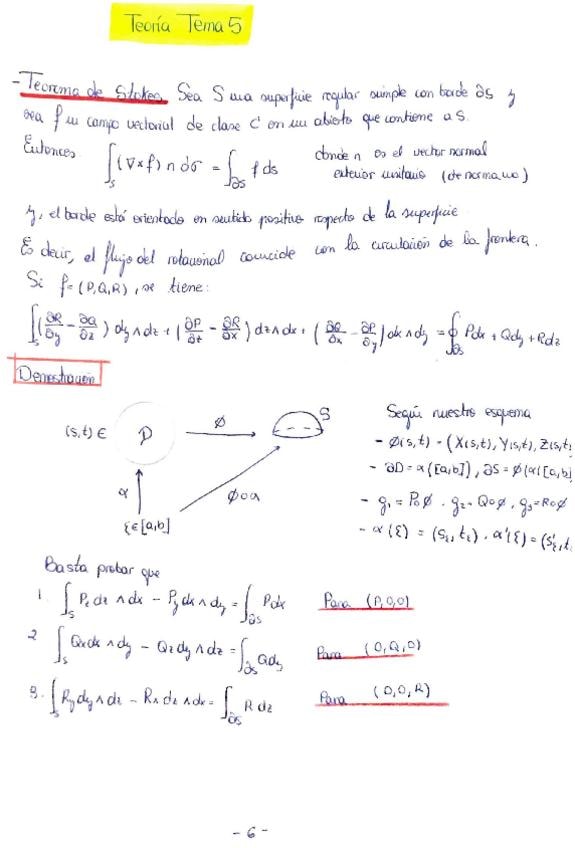 Teoría Tema 5
- Teorema de Stokes. Sea S una superficie regular simple con borde ∂S y
sea f un campo vectorial de clase C' en un abierto que contiene a S.
Entonces ∫_S (∇×f) n dσ = ∫_∂S f ds donde n es el vector normal
exterior unitario (de norma uno)
y, el borde está orientado en sentido positivo respecto de la superficie.
Es decir, el flujo del rotacional coincide con la circulación de la frontera.
Si f = (P,Q,R), se tiene:
∫_S (∂R/∂y - ∂Q/∂z) dy∧dz + (∂P/∂z - ∂R/∂x) dz∧dx + (∂Q/∂x - ∂P/∂y) dx∧dy = ∮_∂S Pdx + Qdy + Rdz
Demostración
(s,t) ∈ D
ϕ
S
α
ϕoα
ξ∈[a,b]
Según nuestro esquema
- ϕ(s,t) = (X(s,t), Y(s,t), Z(s,t
- ∂D = α([a,b]), ∂S = ϕ(α([a,b
- g₁ = Poϕ . g₂ = Qoϕ, g₃ = Roϕ
- α(ξ) = (s_ξ, t_ξ) . α'(ξ) = (s'_ξ, t
Basta probar que
1. ∫_S P_z dz∧dx - P_y dx∧dy = ∫_∂S Pdx Para (P,0,0)
2 ∫_S Q_x dx∧dy - Q_z dy∧dz = ∫_∂S Qdy Para (0,Q,0)
3. ∫_S R_y dy∧dz - R_x dz∧dx = ∫_∂S R dz Para (0,0,R)
- 6 -